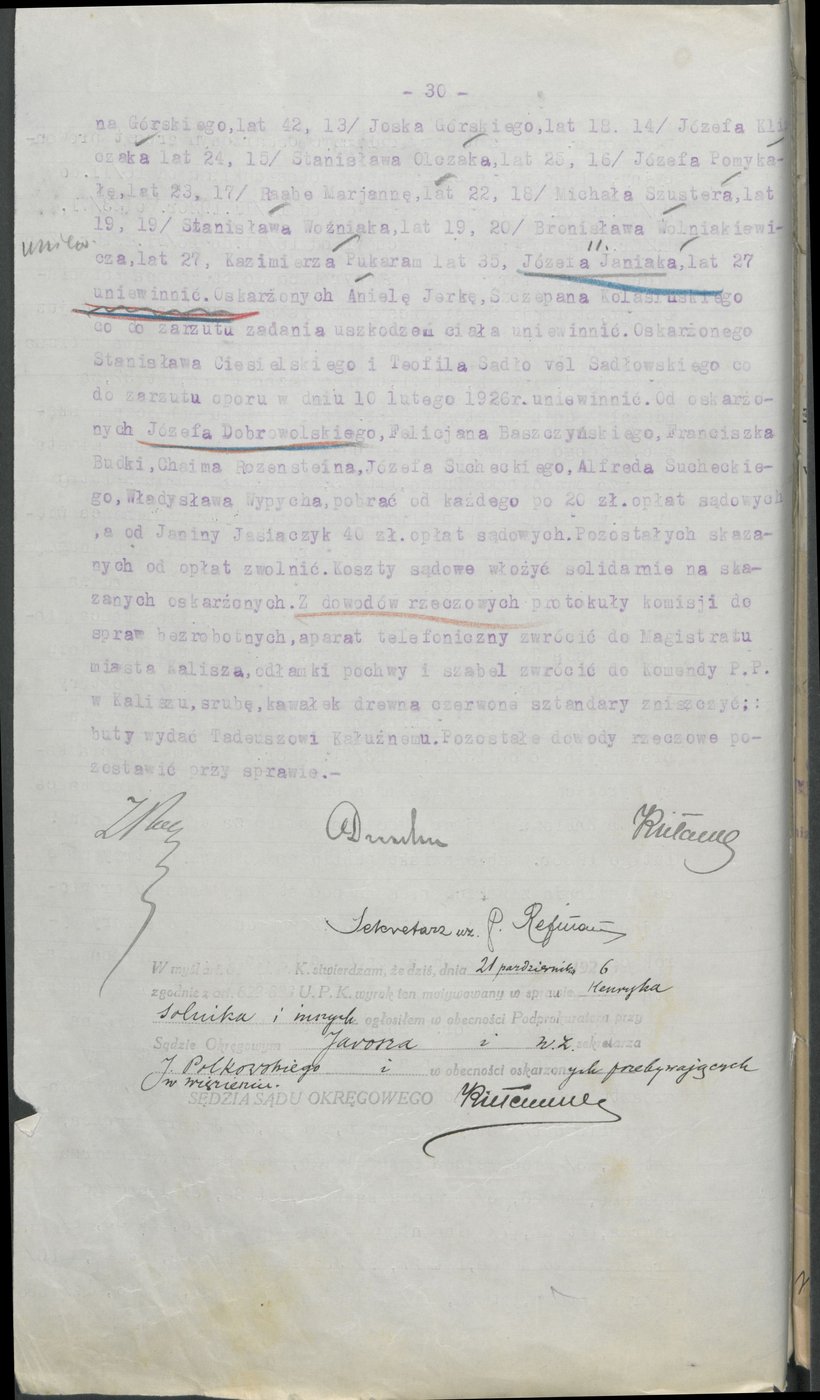 - 30 -
na Górskiego,lat 42, 13/ Joska Górskiego,lat 18. 14/ Józefa Kli
czaka lat 24, 15/ Stanisława Olczaka,lat 28, 16/ Józefa Pomyka-
łę,lat 23, 17/ Raabe Marjannę,lat 22, 18/ Michała Szustera,lat
19, 19/ Stanisława Woźniaka,lat 19, 20/ Bronisława Wolniakiewi-
cza,lat 27, Kazimierza Pukaram lat 35, Józefa Janiaka,lat 27
uniewinnić.Oskarżonych Anielę Jerkę,Szczepana Kolasińskiego
co do zarzutu zadania uszkodzeń ciała uniewinnić.Oskarżonego
Stanisława Ciesielskiego i Teofila Sadło vel Sadłowskiego co
do zarzutu oporu w dniu 10 lutego 1926r.uniewinnić.Od oskarżo-
nych Józefa Dobrowolskiego,Felicjana Baszczyńskiego,Franciszka
Budki,Chaima Rozensteina,Józefa Sucheckiego,Alfreda Sucheckie-
go,Władysława Wypycha,pobrać od każdego po 20 zł.opłat sądowych
,a od Janiny Jasiaczyk 40 zł.opłat sądowych.Pozostałych skaza-
nych od opłat zwolnić.Koszty sądowe włożyć solidarnie na ska-
zanych oskarżonych.Z dowodów rzeczowych protokuły komisji do
spraw bezrobotnych,aparat telefoniczny zwrócić do Magistratu
miasta Kalisza,odłamki pochwy i szabel zwrócić do Komendy P.P.
w Kaliszu,srubę,kawałek drewna czerwone sztandary zniszczyć;:
buty wydać Tadeuszowi Kałużnemu.Pozostałe dowody rzeczowe po-
zostawić przy sprawie.-
Sekretarz wz.
W myśl K. stwierdzam, że dziś, dnia 21 października 6
zgodnie z art. U. P. K. wyrok ten motywowany w sprawie Henryka
Solnika i innych ogłosiłem w obecności Podprokuratora przy
Sądzie Okręgowym Jarosza i w.z. sekretarza
J. Polkowskiego i w obecności oskarżonych przebywających
w więzieniu.
SĘDZIA SĄDU OKRĘGOWEGO